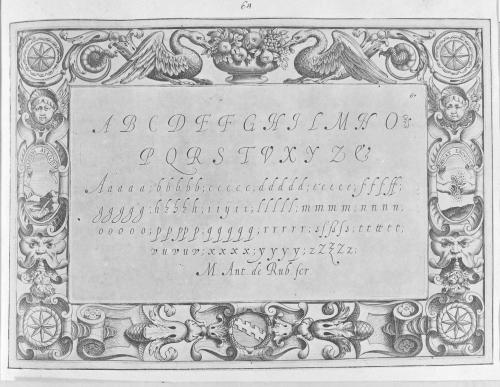 A B C D E F F G H I L M N O
P Q R S T V X Y Z &
A a a a a ; b b b b b ; c c c c c ; d d d d d ; e e e e e ; f f f f f ;
g g g g g ; h h h h h ; i i y i i ; l l l l l ; m m m m ; n n n n ;
o o o o o ; p p p p p ; q q q q q ; r r r r r ; s ſ ß ſ s ; t t t t t ;
v u v u v ; x x x x ; y y y y ; z z z z z ;
M. Ant. de Rub. scr